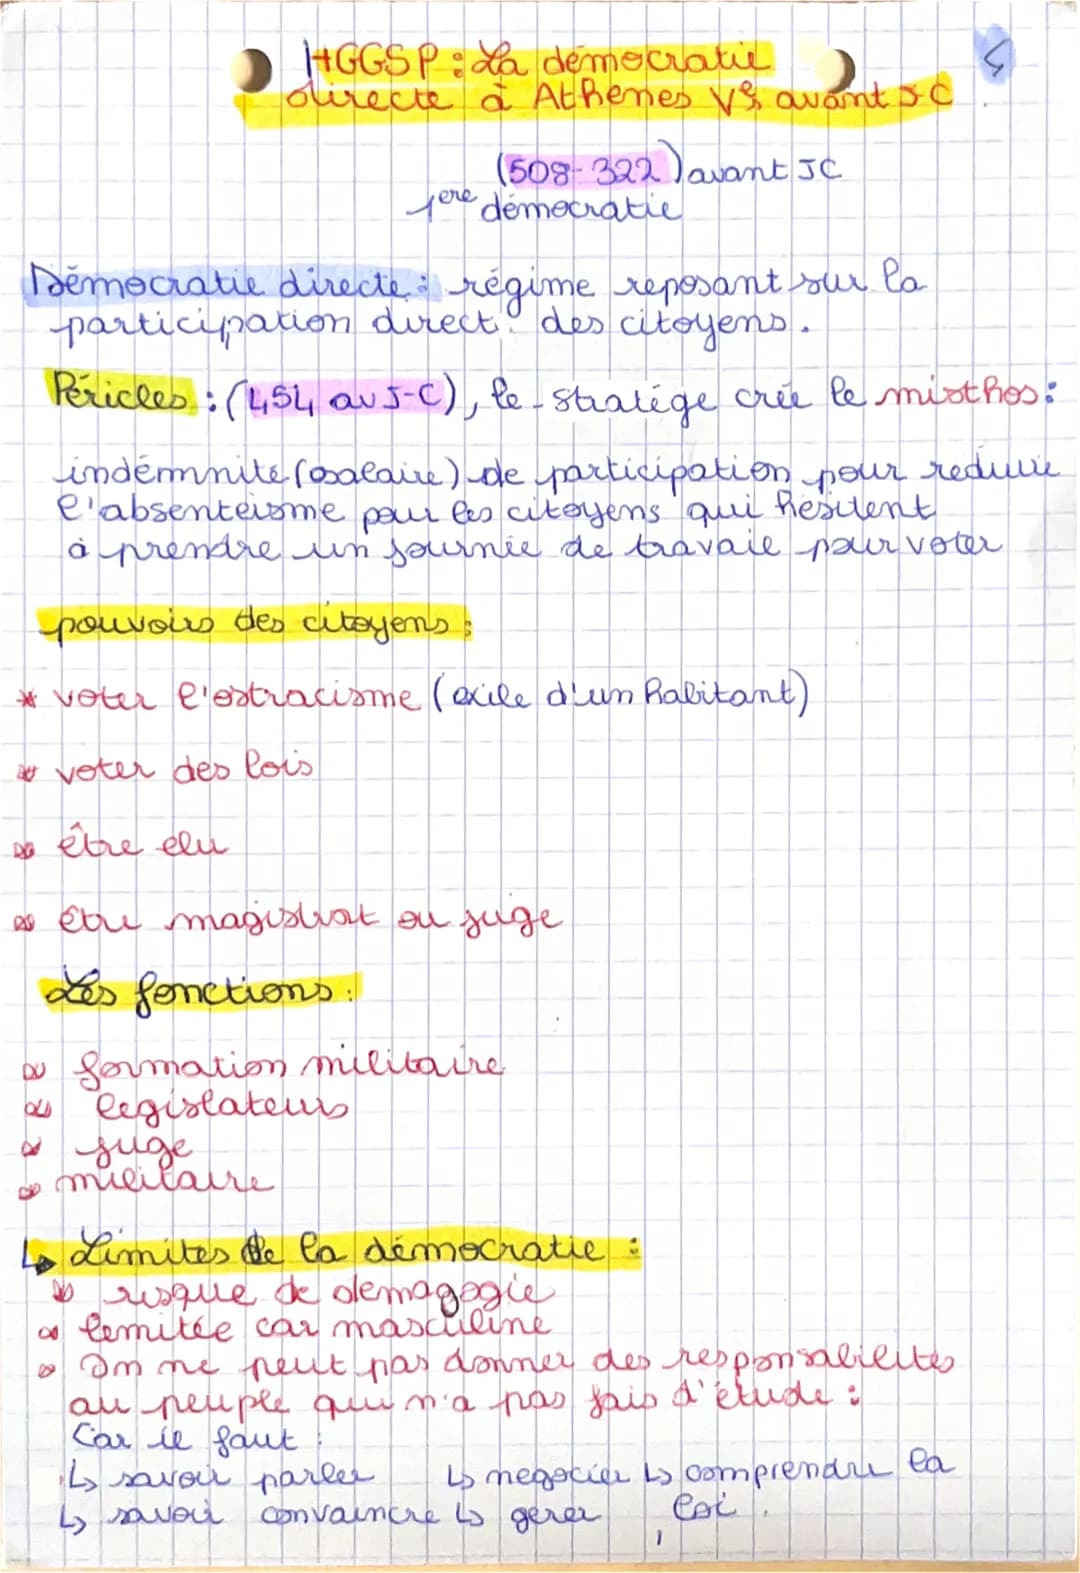 HGGSP : La démocratie
directe à Athènes Vs avant J C
(508-322) avant JC
1ère démocratie
Démocratie directe : régime reposant sur la
participation direct des citoyens.
Péricles : (454 av J-C), le stratège crée le misthos :
indémnité (salaire) de participation pour reduire
l'absentéisme pour les citoyens qui hésitent
à prendre un journée de travaie pour voter
pouvoirs des citoyens :
* voter l'ostracisme (exile d'un habitant)
* voter des lois
* être elu
* être magistrat ou juge
Les fonctions :
* formation militaire
* legislateurs
* juge
* militaire
↳ Limites de la démocratie :
* risque de demagogie
* lemitée car masculine
* On ne peut pas donner des responsabilités
au peuple qui n'a pas fais d'étude :
Car il faut :
↳ savoir parler ↳ negocier ↳ comprendre la
↳ savoir convaincre ↳ gerer loi.